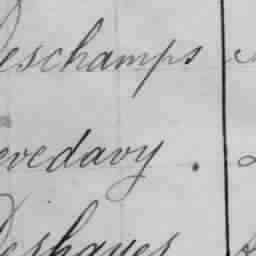 Deschamps
evedavy .
Deshayes